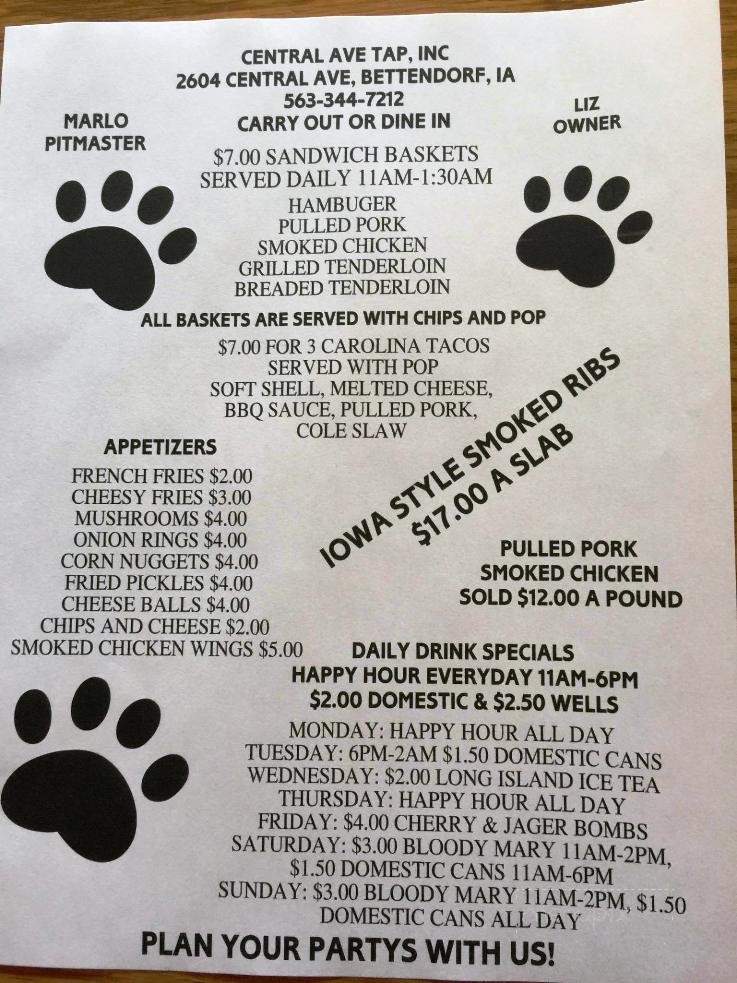 CENTRAL AVE TAP, INC
2604 CENTRAL AVE, BETTENDORF, IA
563-344-7212
CARRY OUT OR DINE IN
MARLO
PITMASTER
LIZ
OWNER
$7.00 SANDWICH BASKETS
SERVED DAILY 11AM-1:30AM
HAMBUGER
PULLED PORK
SMOKED CHICKEN
GRILLED TENDERLOIN
BREADED TENDERLOIN
ALL BASKETS ARE SERVED WITH CHIPS AND POP
$7.00 FOR 3 CAROLINA TACOS
SERVED WITH POP
SOFT SHELL, MELTED CHEESE,
BBQ SAUCE, PULLED PORK,
COLE SLAW
IOWA STYLE SMOKED RIBS
$17.00 A SLAB
APPETIZERS
FRENCH FRIES $2.00
CHEESY FRIES $3.00
MUSHROOMS $4.00
ONION RINGS $4.00
CORN NUGGETS $4.00
FRIED PICKLES $4.00
CHEESE BALLS $4.00
CHIPS AND CHEESE $2.00
SMOKED CHICKEN WINGS $5.00
PULLED PORK
SMOKED CHICKEN
SOLD $12.00 A POUND
DAILY DRINK SPECIALS
HAPPY HOUR EVERYDAY 11AM-6PM
$2.00 DOMESTIC & $2.50 WELLS
MONDAY: HAPPY HOUR ALL DAY
TUESDAY: 6PM-2AM $1.50 DOMESTIC CANS
WEDNESDAY: $2.00 LONG ISLAND ICE TEA
THURSDAY: HAPPY HOUR ALL DAY
FRIDAY: $4.00 CHERRY & JAGER BOMBS
SATURDAY: $3.00 BLOODY MARY 11AM-2PM,
$1.50 DOMESTIC CANS 11AM-6PM
SUNDAY: $3.00 BLOODY MARY 11AM-2PM, $1.50
DOMESTIC CANS ALL DAY
PLAN YOUR PARTYS WITH US!